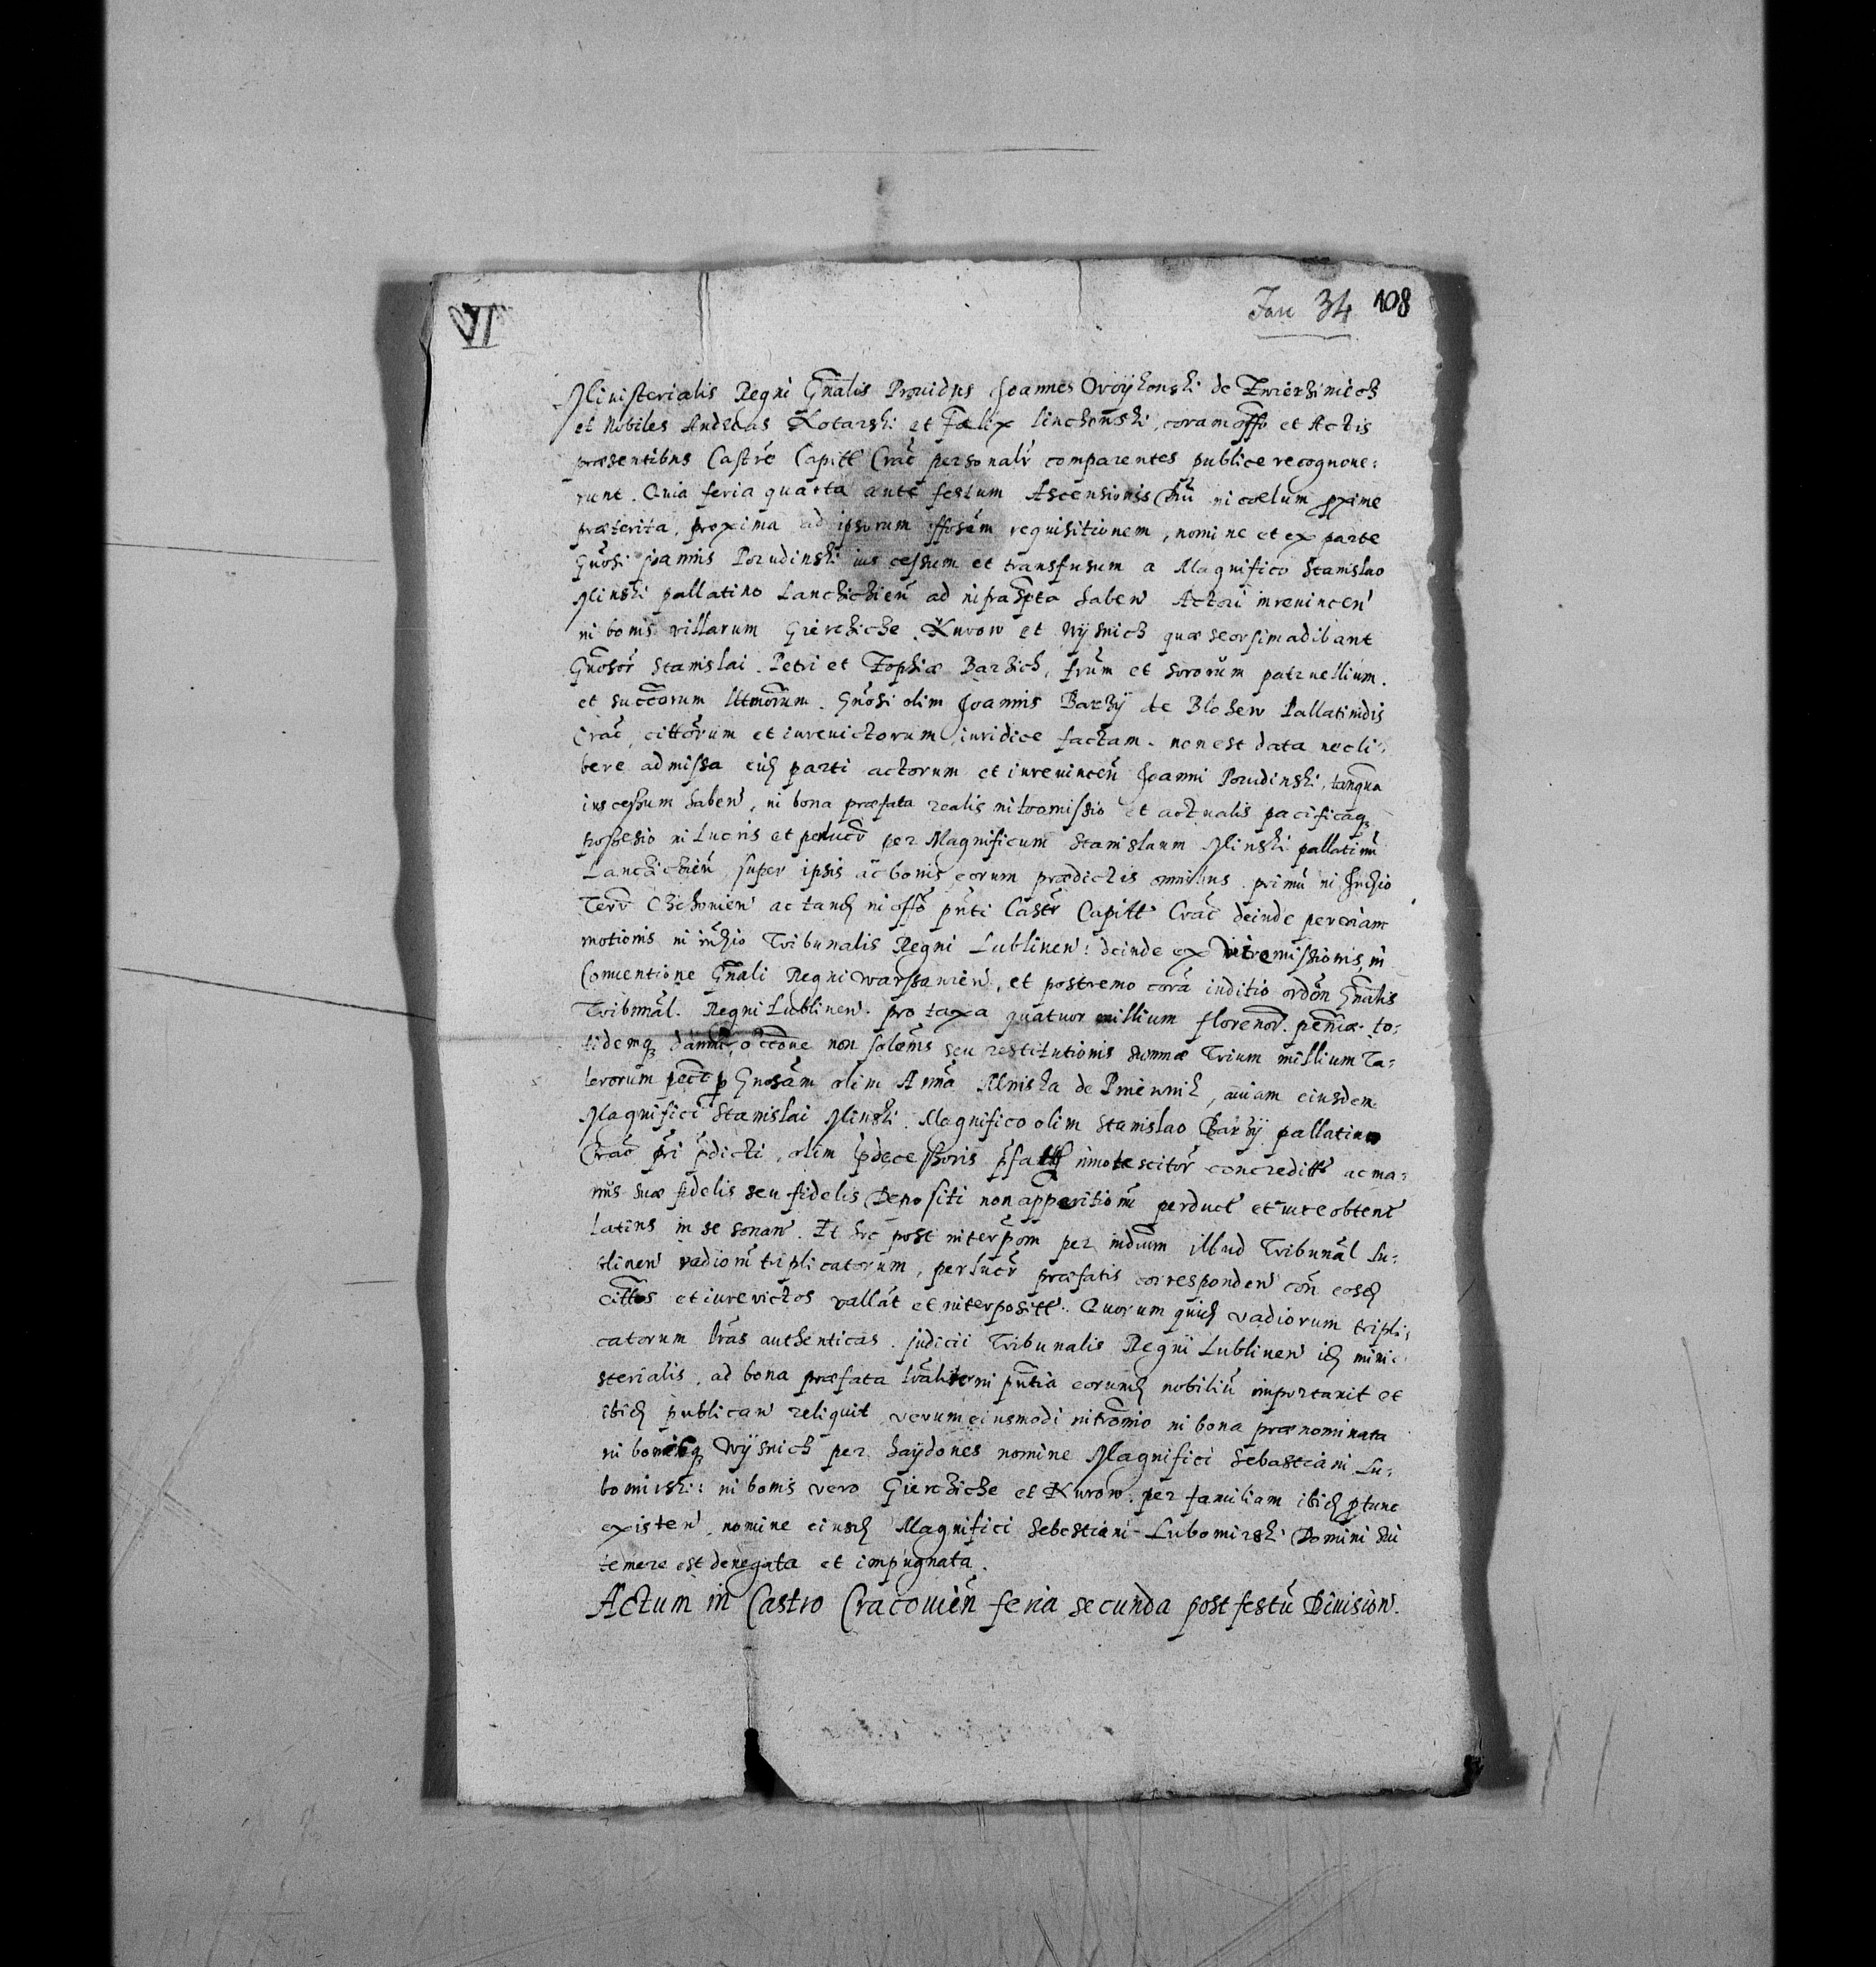 VI
Jan 34 108
Ministerialis Regni Gnalis Prouidus Joannes Woÿkonski de Zwierziniecz
et Nobiles Andreas Kotarski et Fœlix, coram offo et Actis
præsentibus Castrē Capitł Crac personalr comparentes publice recognoue:
runt. Quia feria quarta ante festum Ascensionis Chri in cœlum pxime
præterita, proxima ad ipsorum offosam requisitionem, nomine et ex parte
Gnosi Joannis Porudinski ius cessum et transfusum a Magnifico Stanislao
Minski pallatino Lancziczien ad infrascpta haben Actori inreuincen
in bonis villarum Gierczicze, Kurow et Wÿsnicz quæ seorsim adibant
Gnosor Stanislai, Petri et Zophiæ Barzich, frum et sororum patruellium,
et succorum lttmorum. Gnosi olim Joannis Barzÿ de Blozew Pallatinidis
Crac, cittorum et iureuictorum iuridice factam. non est data nec li:
bere admissa eid parti actorum et iureuincen Joanni Porudinski, tanqua
ius cessum haben, in bona præfata realis intromissio et actualis pacificaq
possesio in lucris et perlucr per Magnificum Stanislaum Minski pallatinu
Lancziczien, super ipsis ac bonis eorum prædictis omnibus primu in Judzio
Terr Czchouien ac tand in offo pnti Castr Capitł Crac deinde per viam
motionis in iudzio Tribunalis Regni Lublinen: deinde ex vi remissionis, in
Conuentione Gnali Regni warssauien, et postremo cora iuditio ordon Gnalis
Tribunal. Regni Lublinen. pro taxa quatuor millium florenor. pecniæ to:
tidemq damni, occone non solonis seu restitutionis summæ Trium millium Ta:
lerorum p Gnosam olim Anna Mniska de Pniewnik, auiam eiusdem
Magnifici Stanislai Minski. Magnifico olim Stanislao Barzÿ pallatino
Crac pri pdicti, olim pdecessoris innotescitor concreditł ac ma:
nus suæ fidelis seu fidelis Depositi non apparitionu perduct et iure obtent
latius in se sonan. Et hoc post interpom per iudium illud Tribunal Lu:
blinen vadioru triplicatorum, perlucr præfatis corresponden con eosd
cittos et iureuictos vallat et interpositt. Quorum quid vadiorum tripli:
catorum lras authenticas judicii Tribunalis Regni Lublinen id mini:
sterialis, ad bona præfata in pntia eorumd nobiliu importauit et
ibid publican reliquit verum eiusmodi intromio in bona prænominata
in bonisq Wÿsnicz per haÿdones nomine Magnifici Sebastiani Lu:
bomirski: in bonis vero Gierczicze et Kurow. per familiam ibid ptunc
existen, nomine eiusd Magnifici Sebestiani Lubomirski Domini sui
temere est denegata et impugnata.
Actum in Castro Cracouien feria secunda post festu Diuision.